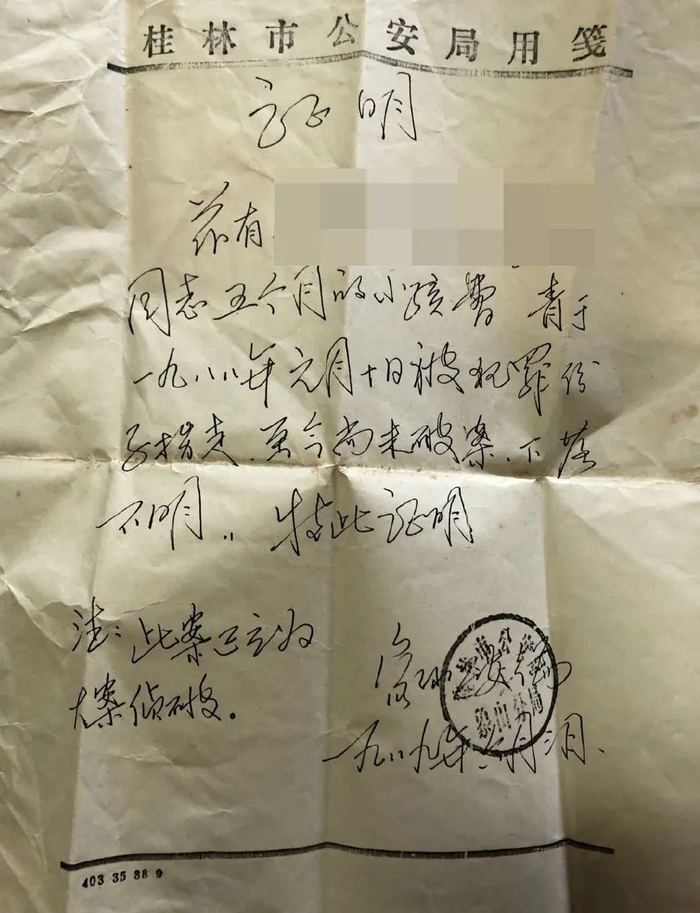 桂林市公安局用笺
证明
兹有
同志五个月的小孩费 青于
一九八八年元月十日被犯罪份
子拐走.至今尚未破案.下落
不明.. 特此证明
注:此案已立为
大案侦破。
象山
象山分局
一九八九年 月 日.
403 35 88 9